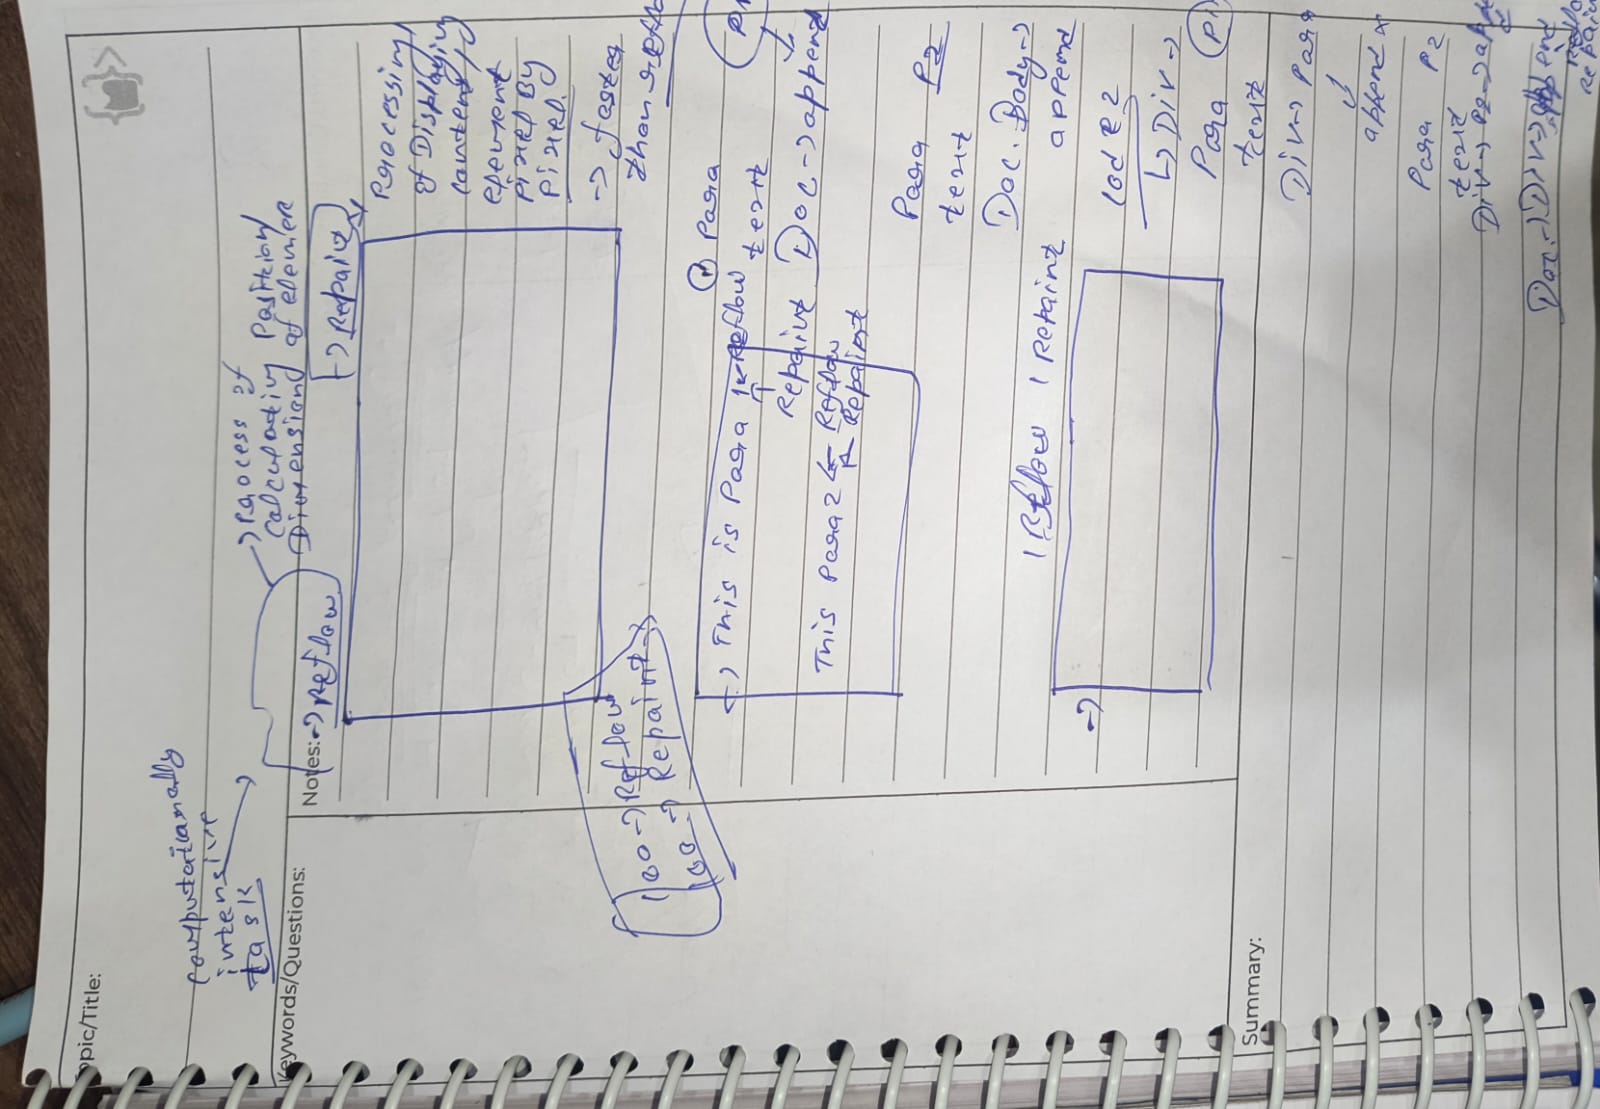 Topic/Title:
computationally
intensive
task
→ process of
calculating Position/
Dimension of element
Keywords/Questions:
Notes:
→ Reflow
→ Repaint
Processing
of Displaying
content/
element
pixel By
pixel.
→ faster
than reflow
100 → Reflow
100 → Repaint
→ This is Para 1 ← Reflow
Repaint
This Para 2 ← Reflow
Repaint
① Para
text
Doc. → append
P1
Para P2
text
Doc. Body →
append
1 Reflow 1 Repaint
→
Cod e 2
↳ Div →
Para P1
text
Summary:
Div → Para
append
Para P2
text
Div → P2 → append
Doc. → Div → append
Reflow
Repaint